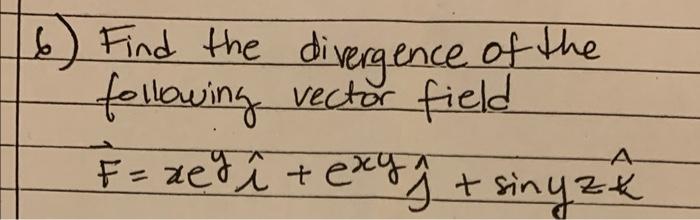 6) Find the divergence of the
following vector field
F⃗ = xe^y î + e^xy ĵ + sin yz k̂